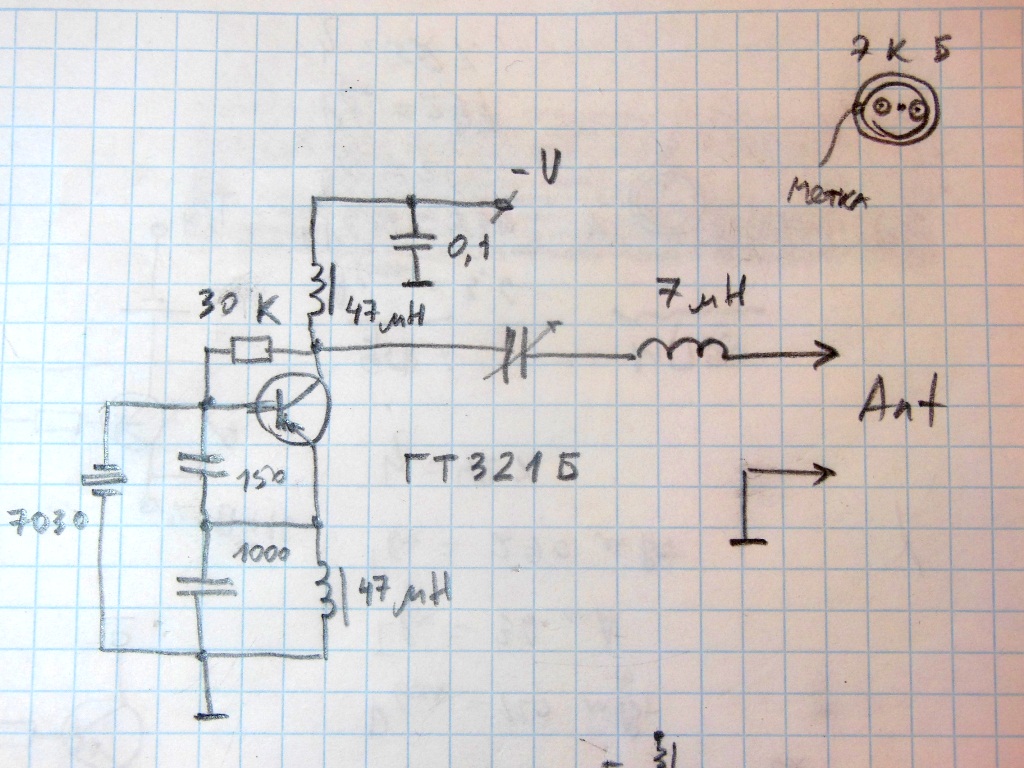 Э К Б
Метка
- V
0,1
30 К
47 мН
7 мН
Ant
ГТ321Б
150
7030
1000
47 мН